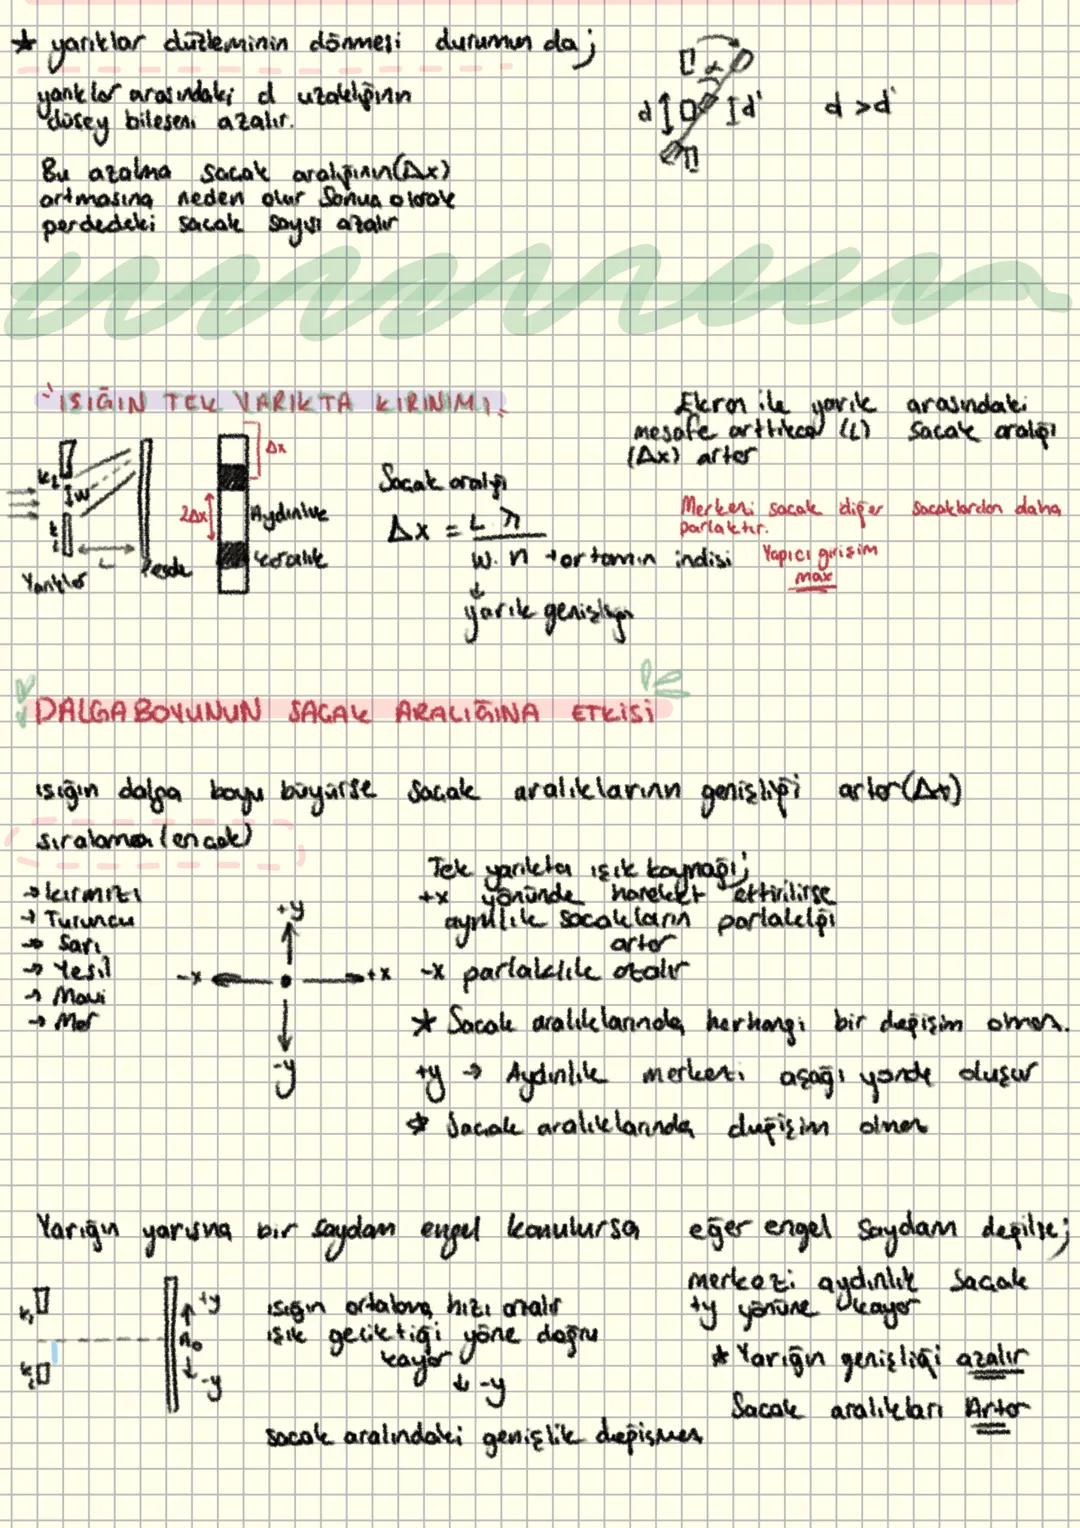 * yarıklar düzleminin dönmesi durumun da;
yarıklar arasındaki d uzaklığının
düşey bileşeni azalır.
d d' d > d'
α
Bu azalma saçak aralığının (Δx)
artmasına neden olur Sonuç olarak
perdedeki saçak sayısı azalır
IŞIĞIN TEK YARIKTA KIRINIMI
Ekran ile yarık arasındaki
mesafe arttıkça (L) saçak aralığı
(Δx) artar
k₂ W L
Yarıklar Perde
Δx
2Δx
Aydınlık
Karanlık
Saçak aralığı
Δx = L λ / w. n → ortamın indisi
yarık genişliği
Merkezi saçak diğer saçaklardan daha
parlaktır.
Yapıcı girişim
max
DALGA BOYUNUN SAÇAK ARALIĞINA ETKİSİ
ışığın dalga boyu büyürse saçak aralıklarının genişliği artar (Δx)
sıralama (en çok)
→ kırmızı
→ Turuncu
→ Sarı
→ Yeşil
→ Mavi
→ Mor
+y
-x +x
-y
Tek yarıkta ışık kaynağı;
+x yönünde hareket ettirilirse
aydınlık saçakların parlaklığı
artar
-x parlaklık azalır
* Saçak aralıklarında herhangi bir değişim olmaz.
+y → Aydınlık merkezi aşağı yönde oluşur
* Saçak aralıklarında değişim olmaz
Yarığın yarısına bir saydam engel konulursa
k₁
k₂
+y
A₀
-y
ışığın ortalama hızı azalır
ışık geciktiği yöne doğru
kayar
↓ -y
saçak aralındaki genişlik değişmez
eğer engel saydam değilse;
merkezi aydınlık saçak
+y yönüne kayar
* Yarığın genişliği azalır
Saçak aralıkları Artar